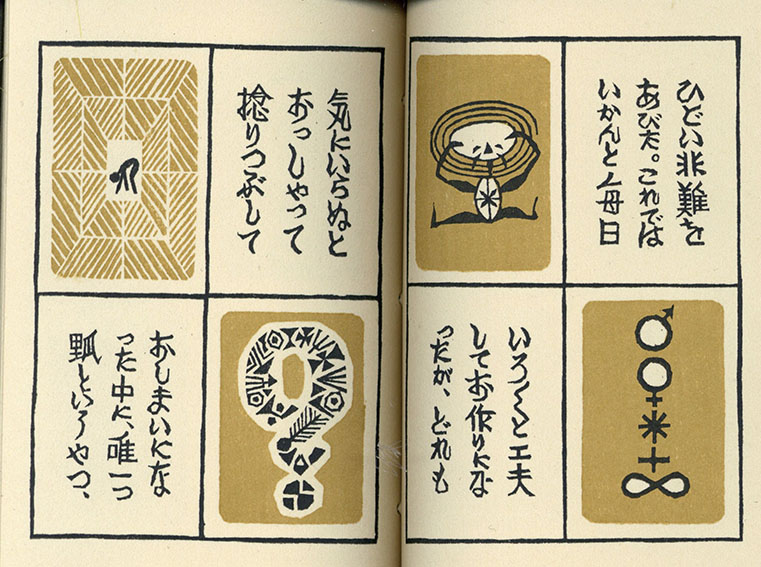 ひどい非難を
あびた。これでは
いかんと毎日
いろ〱と工夫
してお作りにな
ったが、どれも
気にいらぬと
おっしゃって
捻りつぶして
おしまいにな
った中に、唯一つ
瓢というやつ、